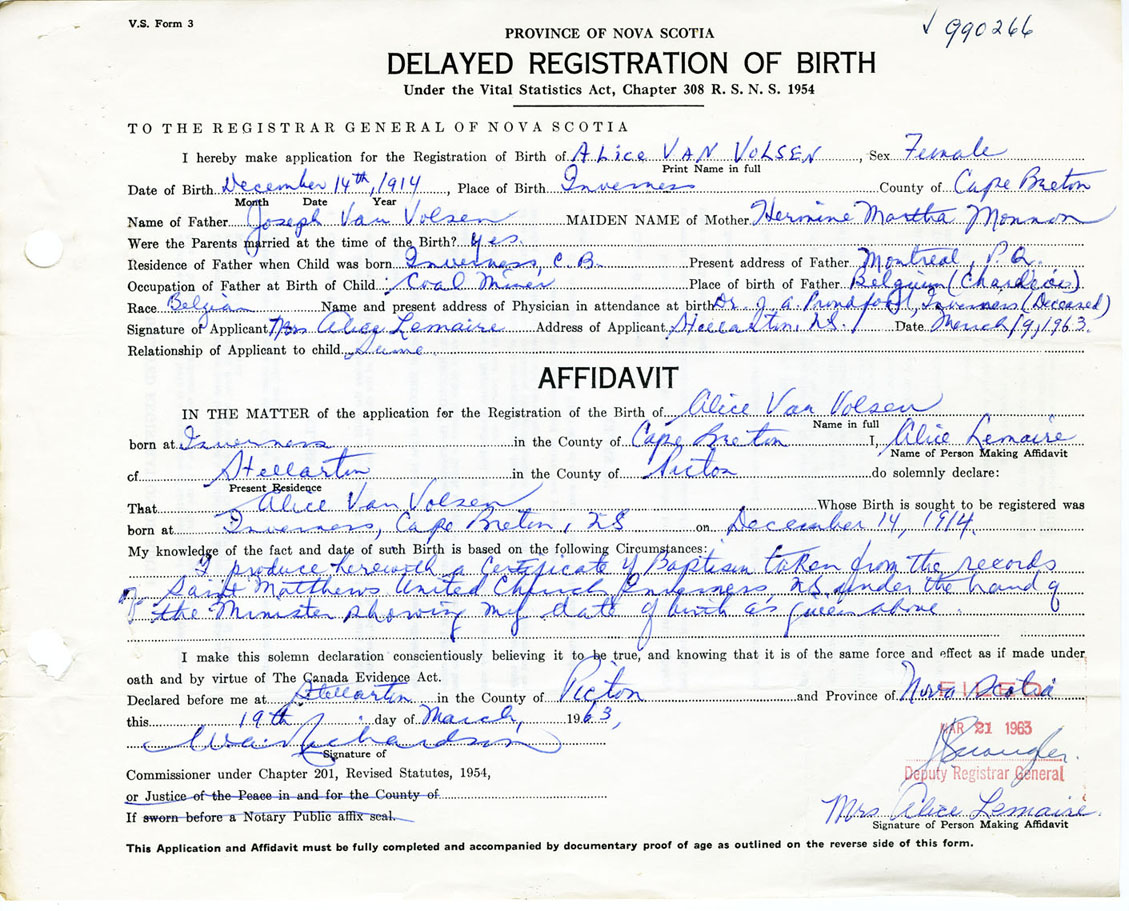 V.S. Form 3
√ 990266
PROVINCE OF NOVA SCOTIA
DELAYED REGISTRATION OF BIRTH
Under the Vital Statistics Act, Chapter 308 R. S. N. S. 1954
TO THE REGISTRAR GENERAL OF NOVA SCOTIA
I hereby make application for the Registration of Birth of Alice VAN VOLSEN, Sex Female
Print Name in full
Date of Birth December 14th, 1914, Place of Birth Inverness County of Cape Breton
Month Date Year
Name of Father Joseph Van Volsen MAIDEN NAME of Mother Hermine Martha Monnon
Were the Parents married at the time of the Birth? Yes.
Residence of Father when Child was born Inverness, C.B. Present address of Father Montreal, P.Q.
Occupation of Father at Birth of Child Coal Miner Place of birth of Father Belgium
Race Belgian Name and present address of Physician in attendance at birth Dr. J. A. Inverness (Deceased)
Signature of Applicant Mrs Alice Lemaire Address of Applicant Stellarton, N.S. Date March 19, 1963.
Relationship of Applicant to child Same
AFFIDAVIT
IN THE MATTER of the application for the Registration of the Birth of Alice Van Volsen
Name in full
born at Inverness in the County of Cape Breton I, Alice Lemaire
Name of Person Making Affidavit
of Stellarton in the County of Pictou do solemnly declare:
Present Residence
That Alice Van Volsen Whose Birth is sought to be registered was
born at Inverness, Cape Breton, NS on December 14, 1914.
My knowledge of the fact and date of such Birth is based on the following Circumstances:
I produce herewith a Certificate of Baptism taken from the records
of Saint Matthews United Church, Inverness, NS under the hand of
the Minister showing my date of birth as given above.
I make this solemn declaration conscientiously believing it to be true, and knowing that it is of the same force and effect as if made under
oath and by virtue of The Canada Evidence Act.
Declared before me at Stellarton in the County of Pictou and Province of Nova Scotia
FILED
this 19th day of March, 1963,
MAR 21 1963
Richardson
Signature of
Deputy Registrar General
Commissioner under Chapter 201, Revised Statutes, 1954,
or Justice of the Peace in and for the County of
Mrs Alice Lemaire.
If sworn before a Notary Public affix seal.
Signature of Person Making Affidavit
This Application and Affidavit must be fully completed and accompanied by documentary proof of age as outlined on the reverse side of this form.